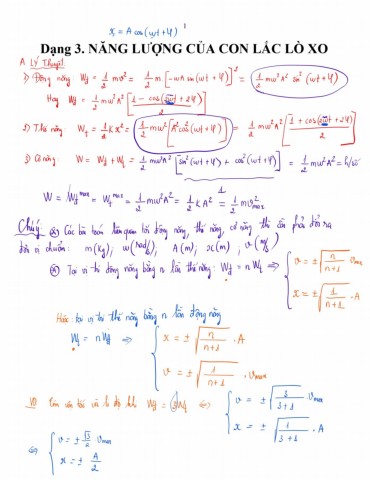 x = A cos(ωt+φ)
1
Dạng 3. NĂNG LƯỢNG CỦA CON LẮC LÒ XO
A. LÝ Thuyết
1) Động năng Wđ = 1/2 mv² = 1/2 m.[-ωA sin(ωt+φ)]² = 1/2 mω²A² sin²(ωt+φ)
Hay Wđ = 1/2 mω²A² [1 - cos(2ωt+2φ)/2]
2) Thế năng: Wt = 1/2 kx² = 1/2 mω² [A² cos²(ωt+φ)] = 1/2 mω²A² [1 + cos(2ωt+2φ)/2]
3) Cơ năng: W = Wđ + Wt = 1/2 mω²A² [sin²(ωt+φ) + cos²(ωt+φ)] = 1/2 mω²A² = h/số
W = Wđmax = Wtmax = 1/2 mω²A² = 1/2 kA² = 1/2 mv²max
Chú ý: Các bài toán liên quan tới động năng, thế năng, cơ năng thì cần phải đổi ra
đời vị chuẩn: m(kg); ω(rad/s), A(m); x(m); v(m/s)
Tại vị trí động năng bằng n lần thế năng: Wđ = nWt ⟹ { v = ± √(n/(n+1)) vmax
x = ± √(1/(n+1)) . A
Hoặc: tại vị trí thế năng bằng n lần động năng
Wt = nWđ ⟹ { x = ± √(n/(n+1)) . A
v = ± √(1/(n+1)) . vmax
VD: Tìm và tốc độ khi Wđ = 3Wt ⟺ { v = ± √(3/(3+1)) . vmax
x = ± √(1/(3+1)) . A
⟺ { v = ± √3/2 vmax
x = ± A/2